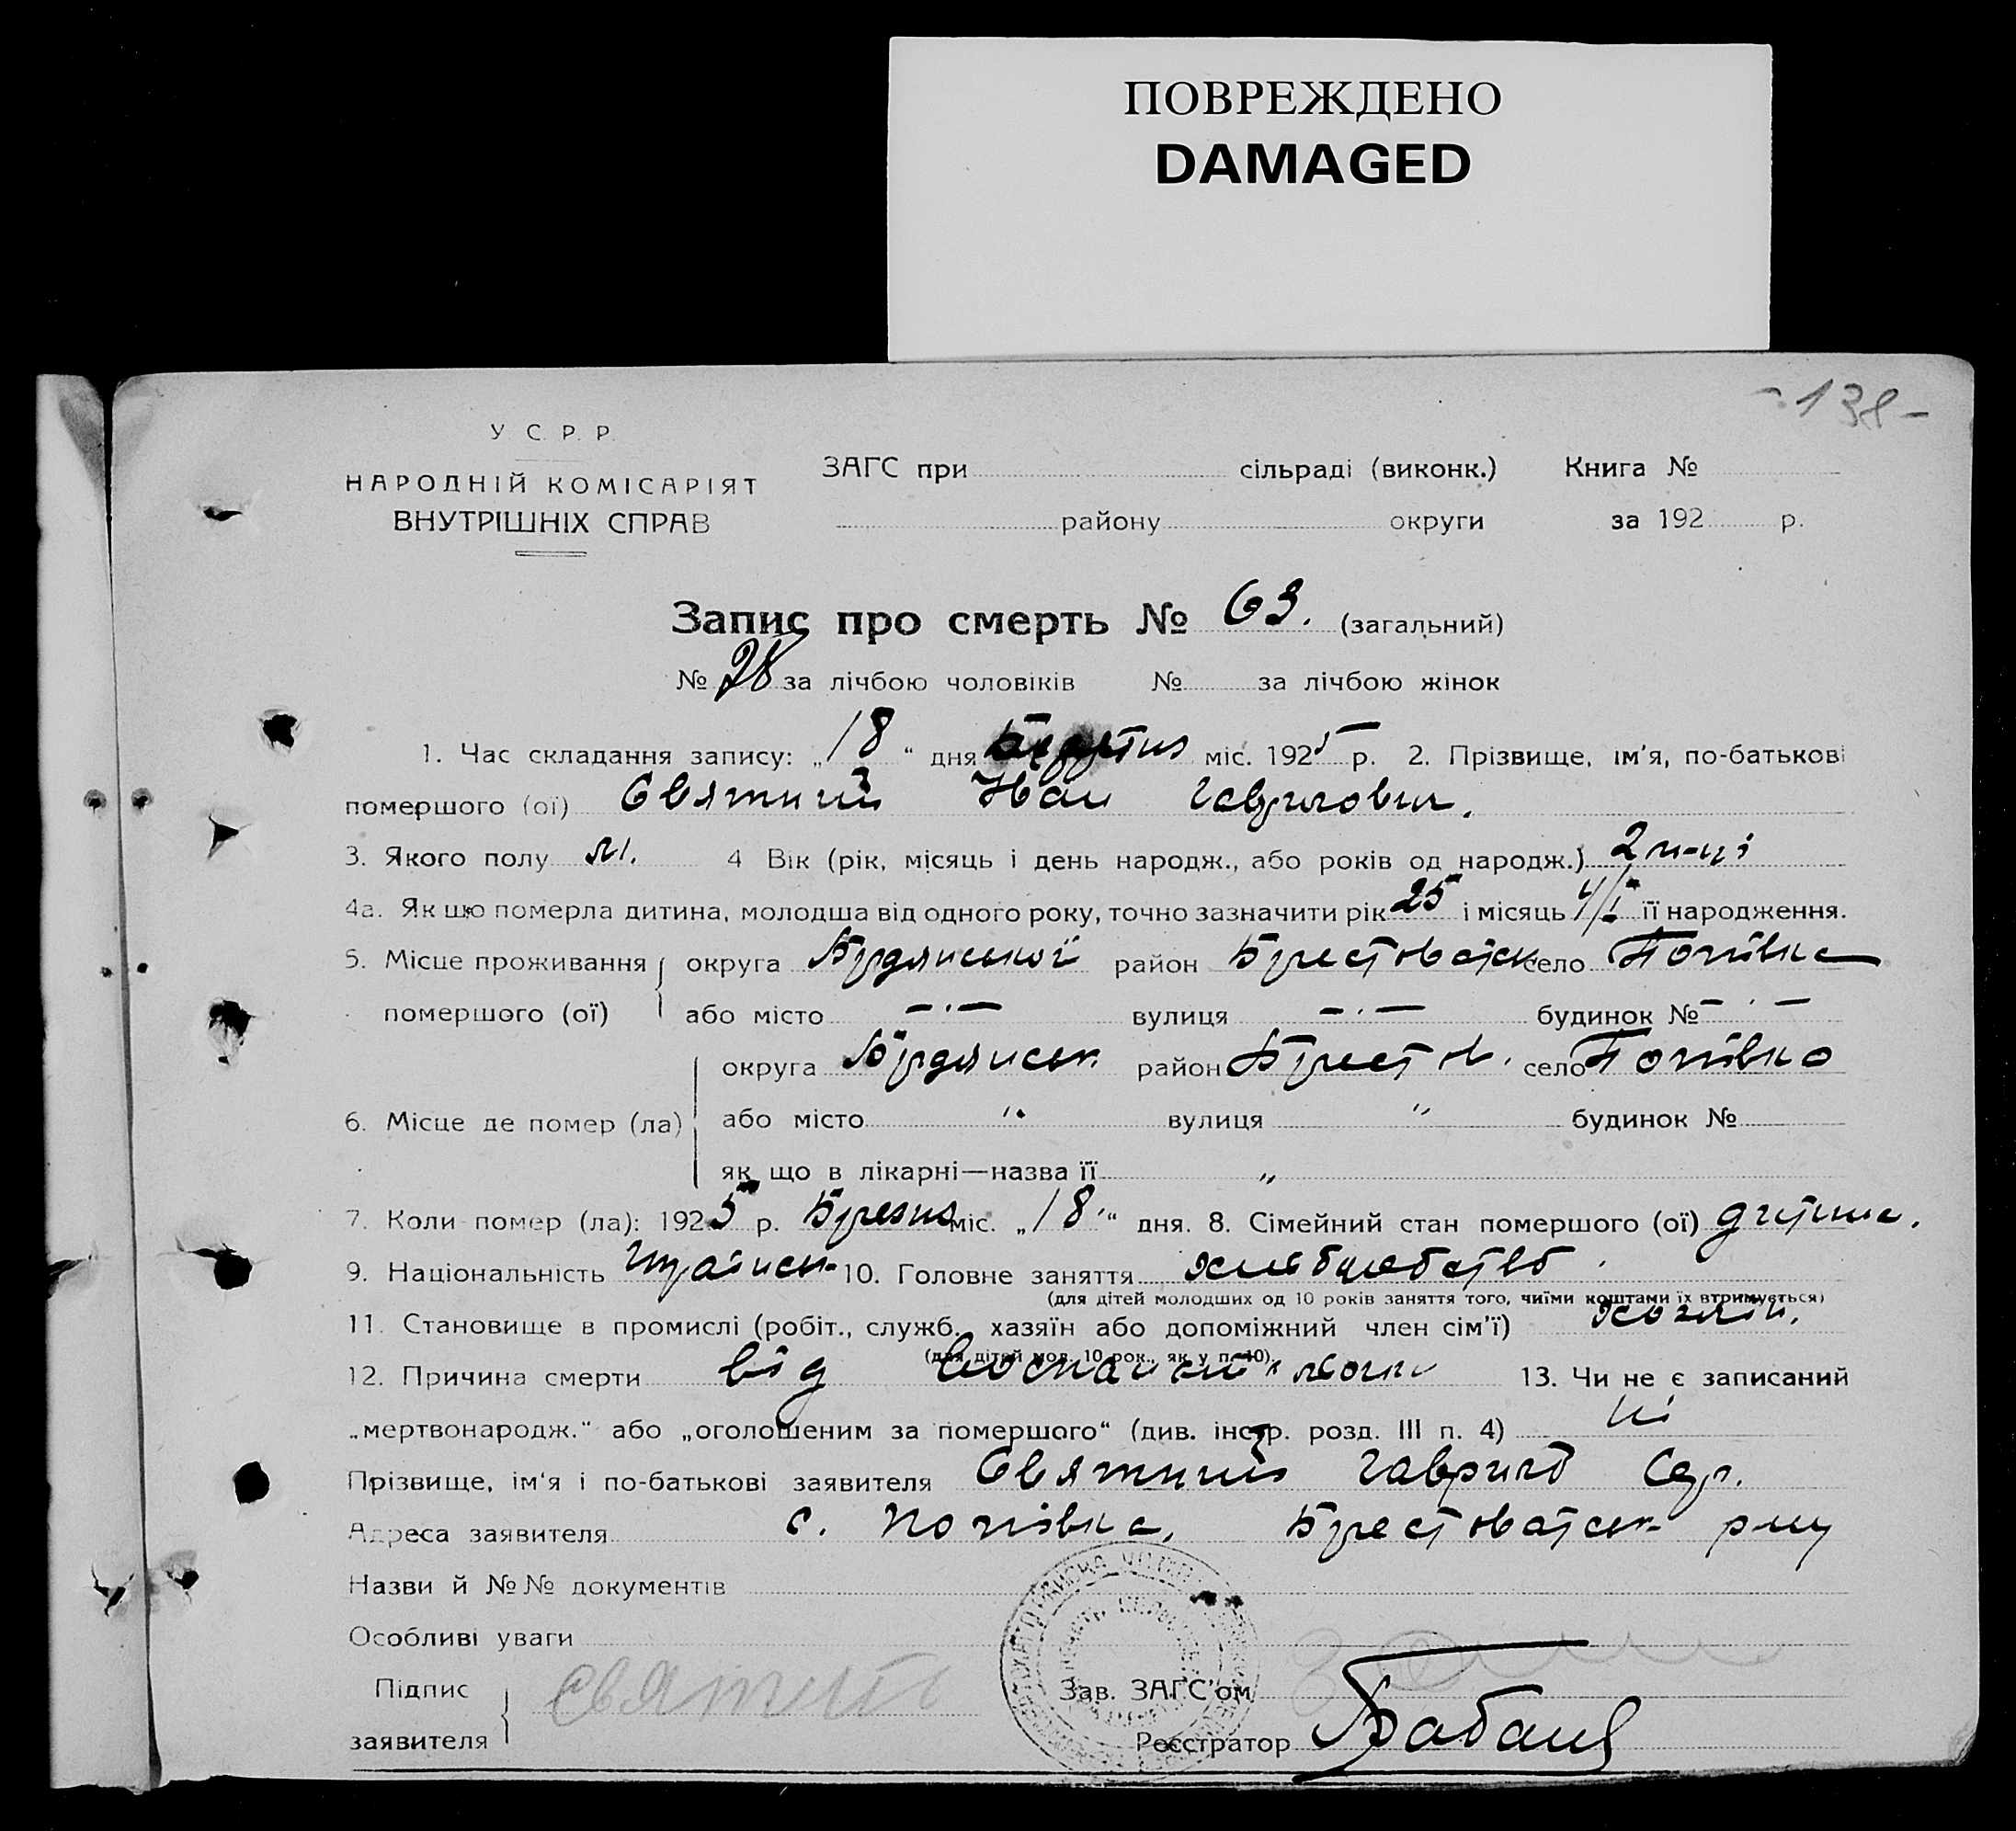 ПОВРЕЖДЕНО
DAMAGED
- 138 -
У С. Р. Р.
НАРОДНІЙ КОМІСАРІЯТ
ВНУТРІШНІХ СПРАВ
ЗАГС при сільраді (виконк.) Книга №
району округи за 192 р.
Запис про смерть № 63. (загальний)
№ 28 за лічбою чоловіків № за лічбою жінок
1. Час складання запису: „18“ дня міс. 1925 р. 2. Прізвище, ім'я, по-батькові
помершого (ої) Святий Иван Гаврилович.
3. Якого полу м. 4 Вік (рік, місяць і день народж., або років од народж.) 2 м-ці
4а. Як що померла дитина, молодша від одного року, точно зазначити рік 25 і місяць 4/I її народження.
5. Місце проживання округа Бердянської район Берестоватск село Попівка
помершого (ої) або місто - . - вулиця - . - будинок № - . -
6. Місце де помер (ла) округа Бердянськ район Берестов. село Попівка
або місто " вулиця " будинок №
як що в лікарні—назва її "
7. Коли помер (ла): 1925 р. Березня міс. „18“ дня. 8. Сімейний стан помершого (ої) дитина.
9. Національність Українськ 10. Головне заняття хліборобство.
(для дітей молодших од 10 років заняття того, чиїми коштами їх втримується)
11. Становище в промислі (робіт., служб., хазяїн або допоміжний член сім'ї) хозяїн.
(для дітей мол. 10 рок., як у п. 10)
12. Причина смерти від 13. Чи не є записаний
„мертвонародж.“ або „оголошеним за помершого“ (див. інстр. розд. III п. 4) ні
Прізвище, ім'я і по-батькові заявителя Святий Гаврило
Адреса заявителя с. Попівка, Берестоватськ р-ну
Назви й №№ документів
Особливі уваги
Підпис заявителя Святий
Зав. ЗАГС'ом
Реєстратор